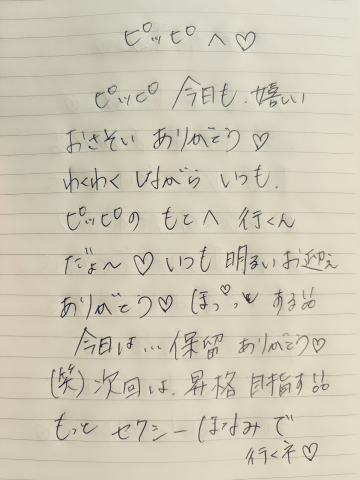 ピッピへ♡
ピッピ 今日も、嬉しい
おさそい ありがとう♡
わくわく しながら いつも、
ピッピの もとへ 行くん
だょ〜♡ いつも 明るいお迎え
ありがとう♡ ほっ♡っ する
今日は… 保留 ありがとう♡
(笑) 次回は、昇格 目指す
もっと セクシー ほなみで
行くネ♡